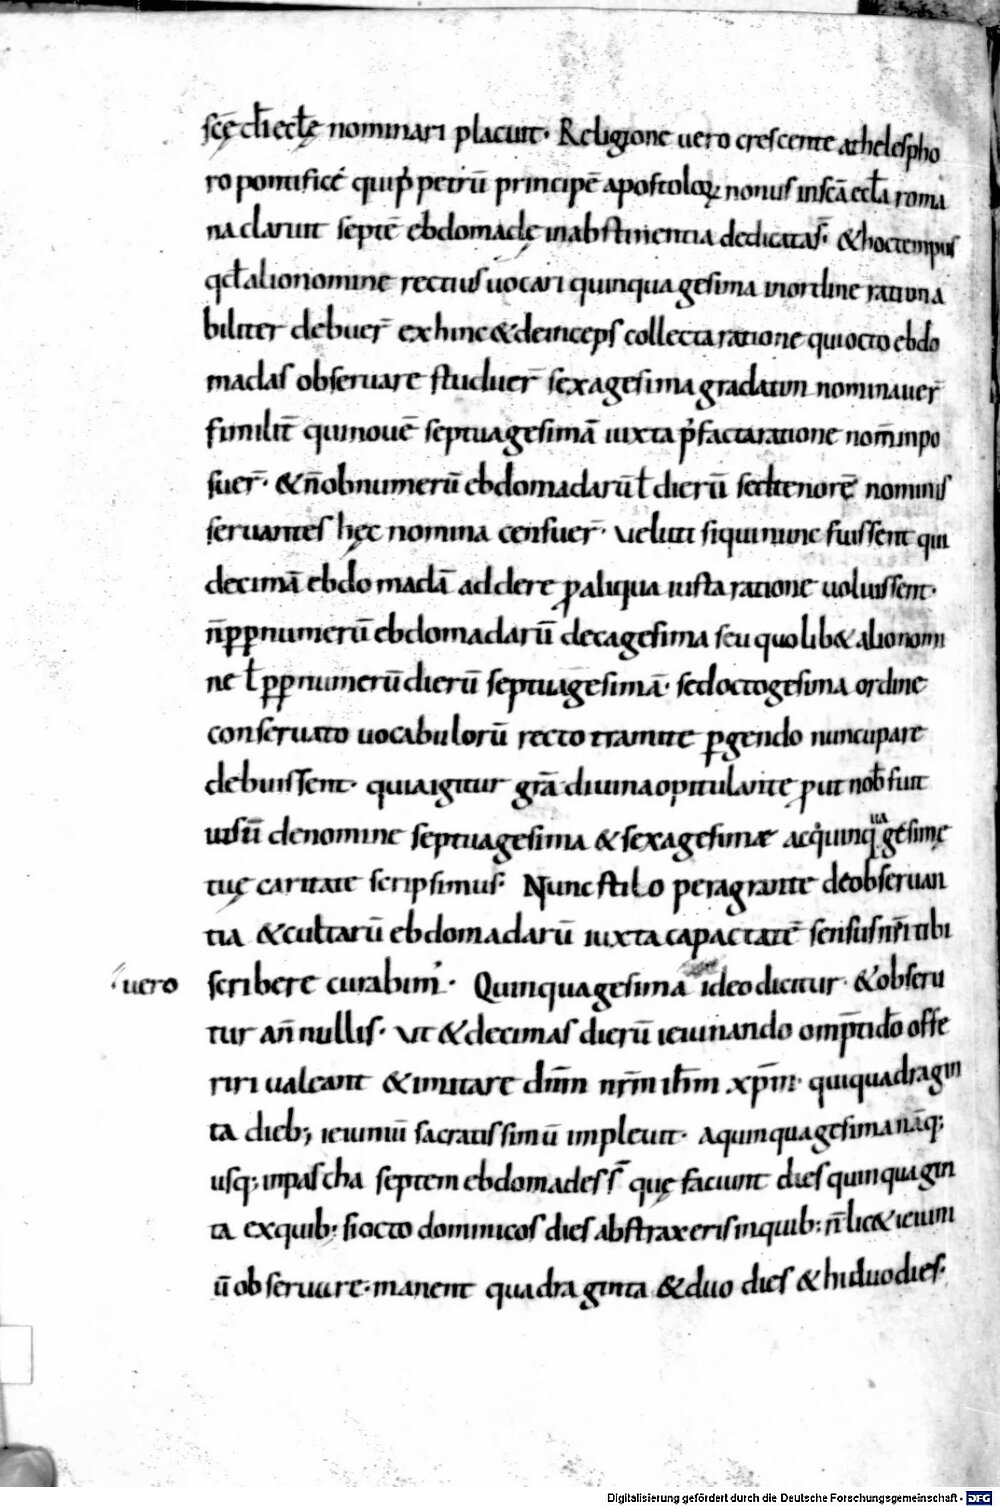 scę̄ di ecłę nominari placuit· Religione uero crescente athelespho
ro pontificē qui p̄ petrū principē apostoloꝝ nonus in scā eccła roma
na claruit septē ebdomadę in abstinentia dedicatas̄· & hoc tempus
qđ alio nomine rectius uocari quinquagesima in ordine rationa
biliter debuer̄ ex hinc & deinceps collecta ratione qui octo ebdo
madas obseruare studuer̄ sexagesima gradatim nominauer̄
similit̄ qui nouē septuagesimā iuxta p̄factaratione nom̄ inpo
suer̄· & n̄ ob numerū ebdomadarū ł dierū sed tenorē nominis
seruantes hęc nomina censuer̄· Veluti siqui nunc fuissent qui
decimā ebdomadā addere ꝓ aliqua iusta ratione uoluissent·
n̄ ꝓpꝑ numerū ebdomadarū decagesima seu quolib& alio nomi
ne ł ꝓpꝑ numerū dierū septuagesimā· sed octogesima ordine
conseruato uocabulorū recto tramite ꝑgendo nuncupare
debuissent· quia igitur grā diuina opitulante ꝓut nob̄ fuit
uisū de nomine septuagesima & sexagesimæ ac quinqua gesimę
tuę caritate scripsimus· Nunc stilo peragrante de obseruan
tia & cultarū ebdomadarū iuxta capacitatē sensus nr̄i tibi
·uero scribere curabim̓· Quinquagesima ideo dicitur· & obseru
tur an̄ nullis· Vt & decimas dierū ieiunando omp̄ti dō offe
riri ualeant & imitare dn̄m nr̄m ih̄m xp̄m· qui quadragin
ta dieb; ieiuniū sacratissimū impleuit· A quinquagesima nāq;
usq; in pascha septem ebdomades s̄ quę faciunt dies quinquagin
ta ex quib; si octo dominicos dies abstraxeris in quib; n̄ lic& ieiuni
ū obseruare· manent quadraginta & duo dies & hi duo dies·
Digitalisierung gefördert durch die Deutsche Forschungsgemeinschaft - DFG